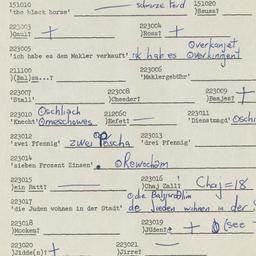 151010 151020
'the black horse' schwarze Pferd )Reuss?
223003 223004
)Gaul? + )Ross? +
223005 Overkanjet
'ich habe es dem Makler verkauft' ik hab es Overkinnent
211100 223006
)(Bal)sa...? 'Maklergebühr'
223007 223008 223009
'Stall' )Cheeder? )Banjes? +
223010 Oschlich 212060 223011
'Knecht' Omeschowes )Befet: 'Dienstmagd' Osch
223012 223013
'zwei Pfennig' zwei Poscha 'drei Pfennig'
223014
'sieben Prozent Zinsen' Rewochem
223015 223016
)ein Ratt? )Chaj Zal? Chaj = 18
223017
'die Juden wohnen in der Stadt' de Jieden wohnen in der
223018 223019
)Mockem? )Jüden?: + (see
223020 223021
)Jidde(n)? + )Jirre?